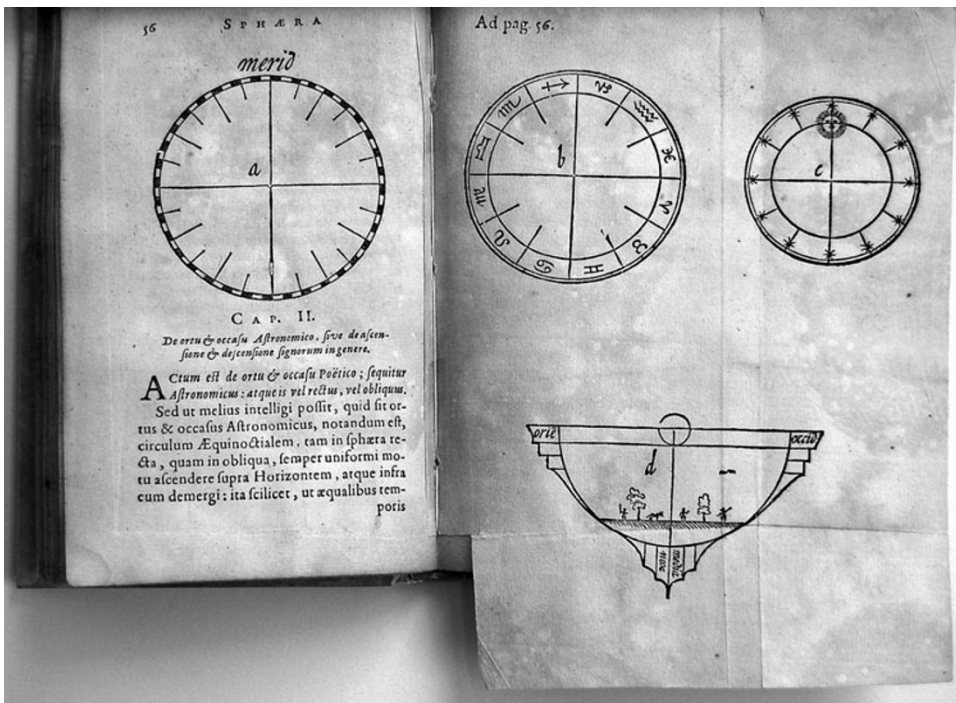 56 SPHÆRA
merid
a
CAP. II.
De ortu & occasu Astronomico, sive de ascen-
sione & descensione signorum in genere.
ACtum est de ortu & occasu Poëtico; sequitur
Astronomicus: atque is vel rectus, vel obliquus.
Sed ut melius intelligi possit, quid sit or-
tus & occasus Astronomicus, notandum est,
circulum Æquinoctialem, tam in sphæra re-
cta, quam in obliqua, semper uniformi mo-
tu ascendere supra Horizontem, atque infra
eum demergi: ita scilicet, ut æqualibus tem-
poris
Ad pag. 56.
♐ ♑ ♒ ♓ ♈ ♉ ♊ ♋ ♌ ♍ ♎ ♏
b
c
orië
occid
d